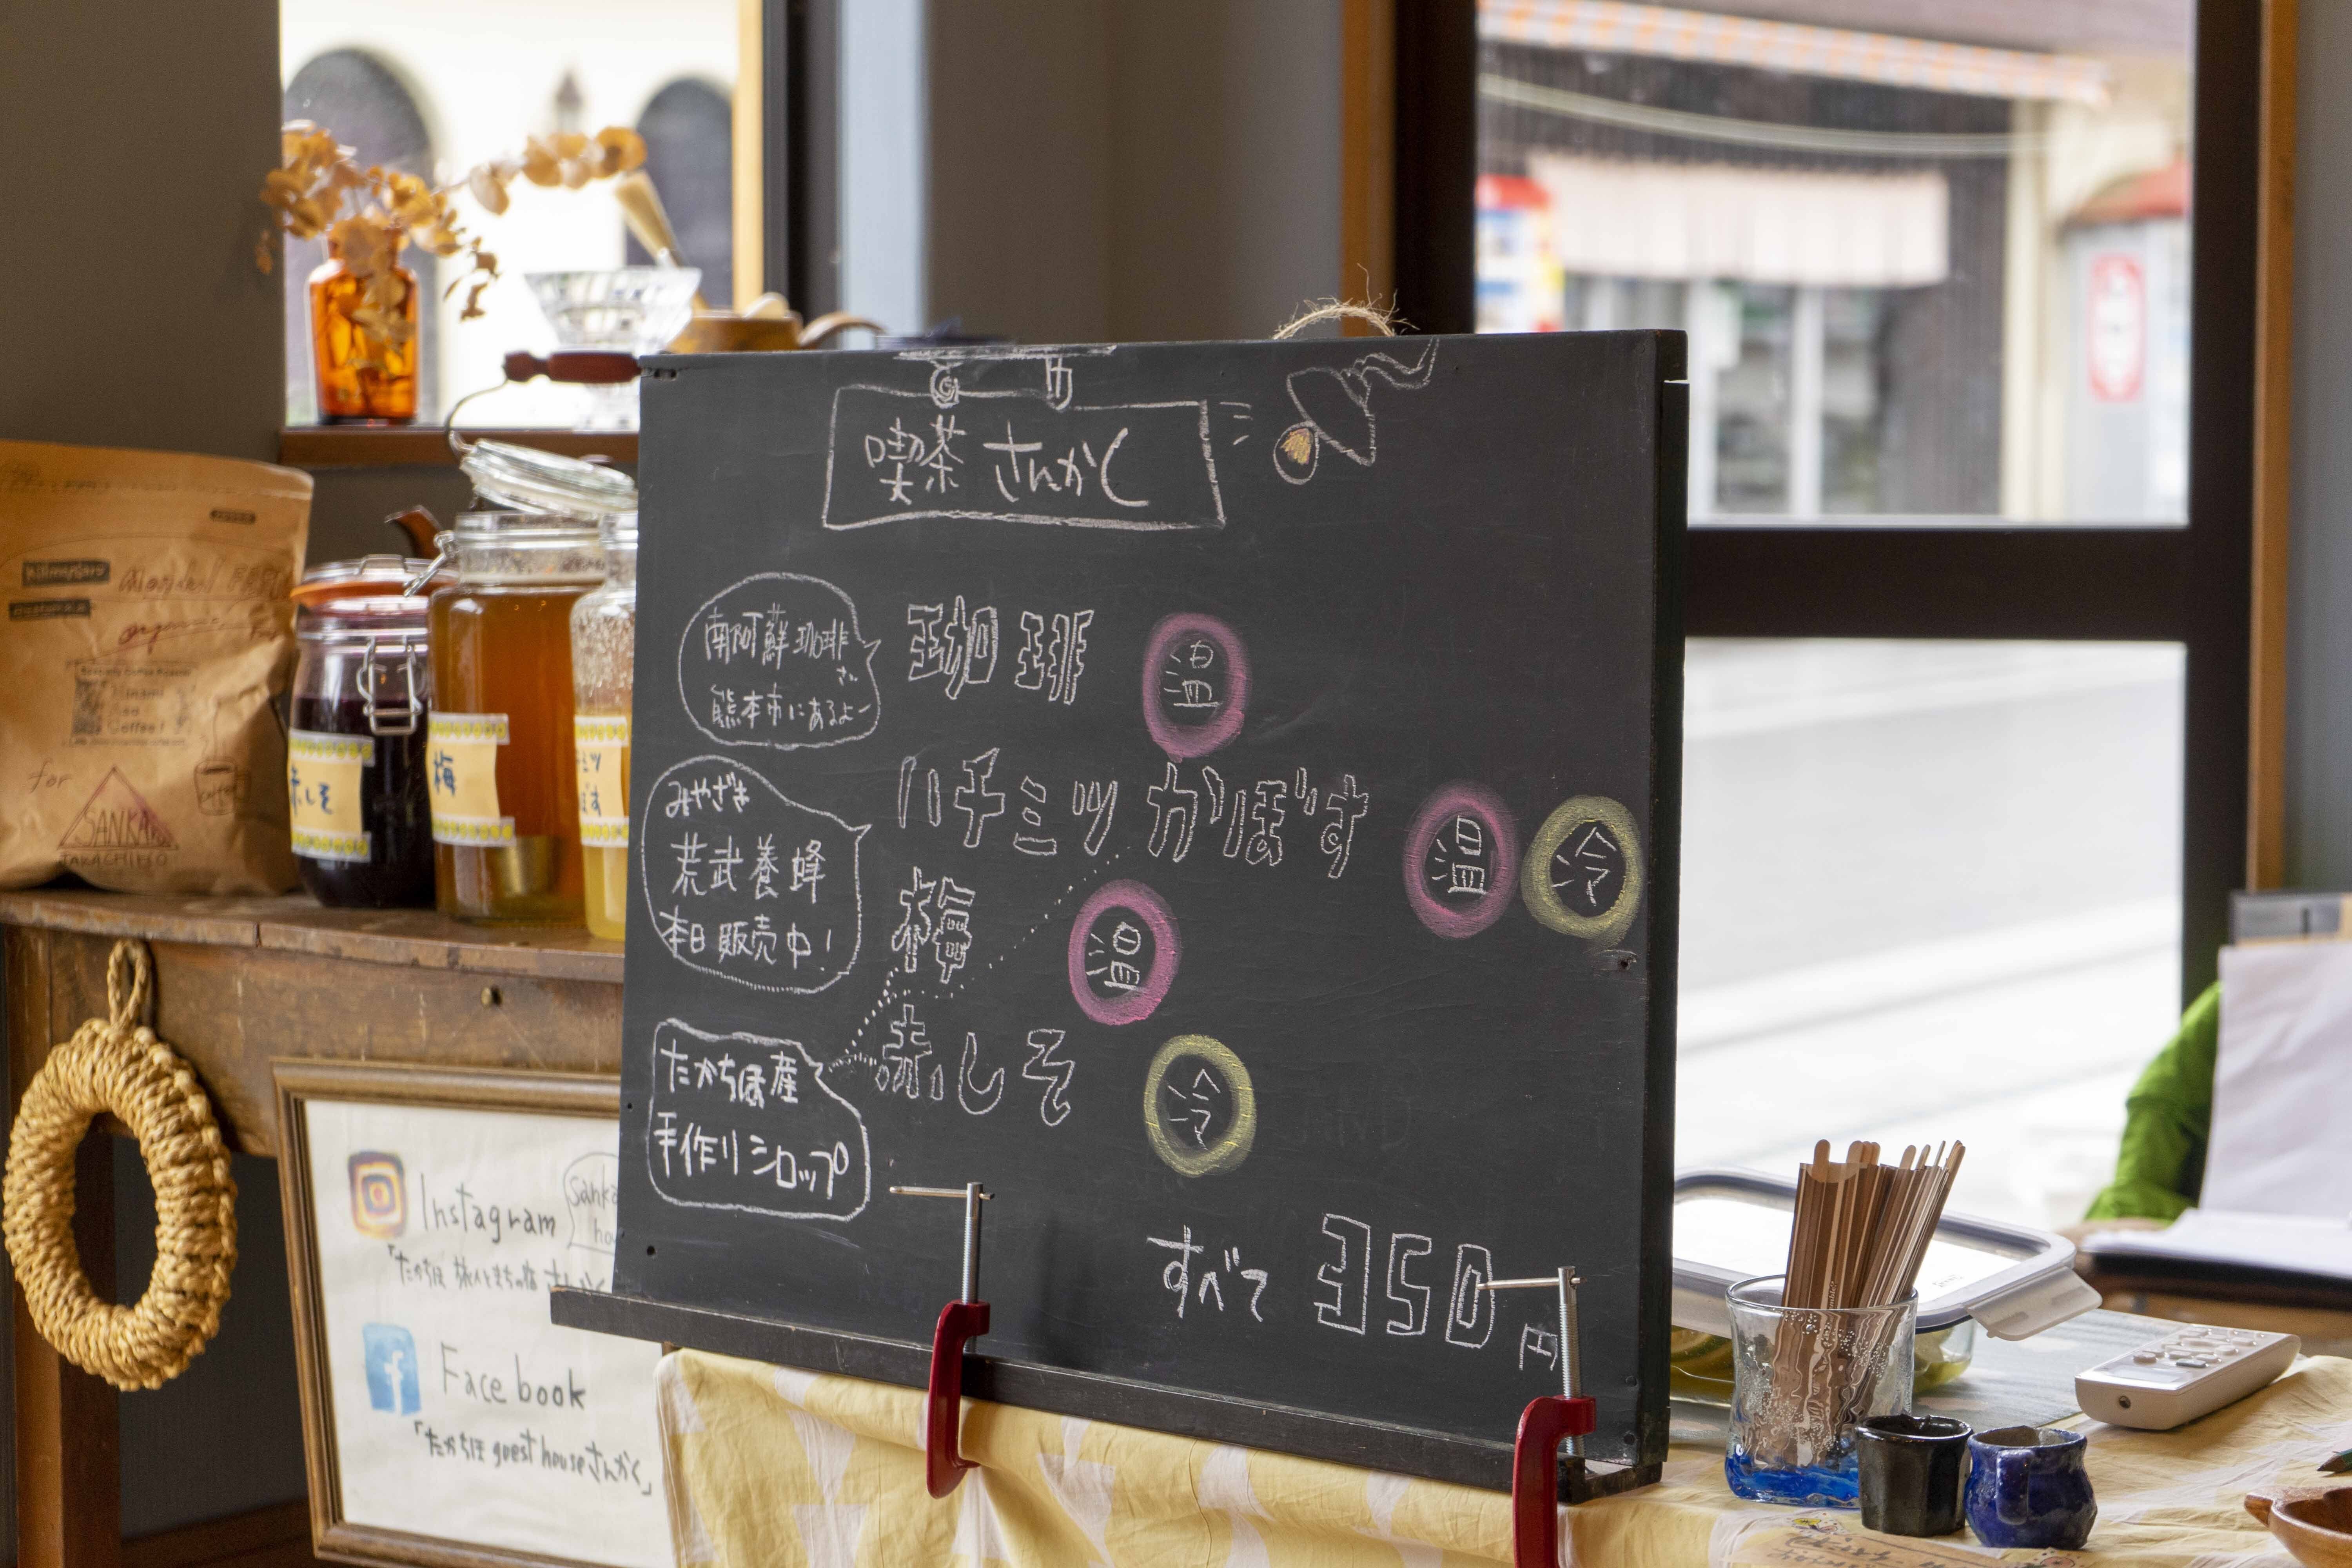 喫茶 さんかく
南阿蘇珈琲
さん
熊本市にあるよー
珈琲 温
みやざき
荒武養蜂
本日販売中!
ハチミツ かぼす 温 冷
梅 温
たかちほ産
手作りシロップ
赤しそ 冷
すべて 350円
organic
Coffee!
for
SANKAKU
TAKACHIHO
赤しそ
梅
Instagram
Facebook
「たかちほ guest house さんかく」